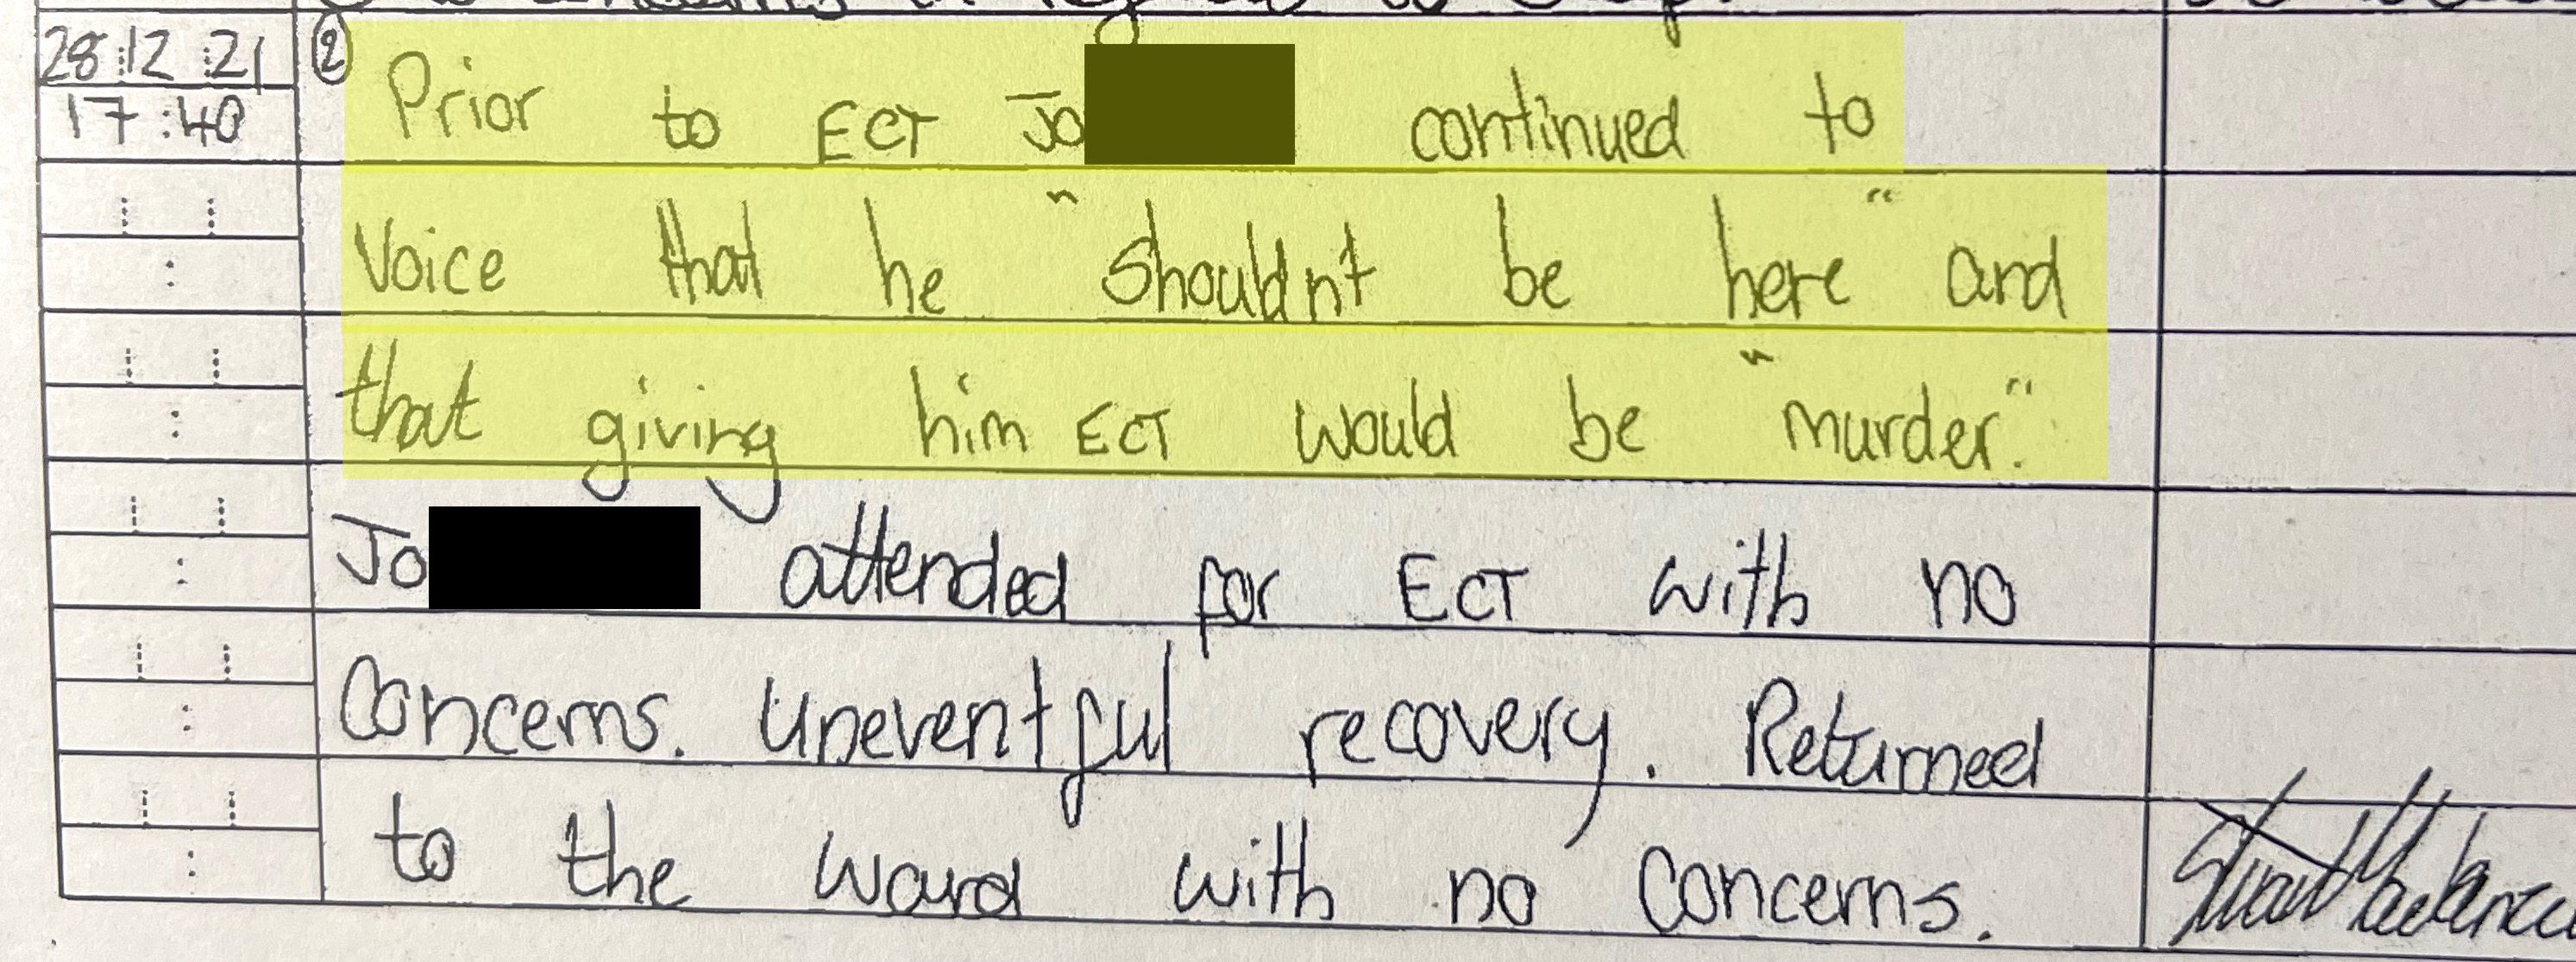 28 12 21
17:40
② Prior to ECT Jo continued to
Voice that he "shouldnt be here" and
that giving him ECT would be "murder."
Jo attended for ECT with no
Concerns. Uneventful recovery. Returned
to the ward with no concerns.